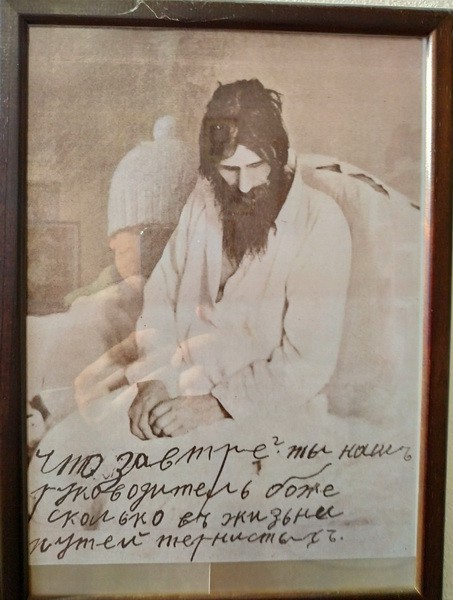 что завтре? ты нашъ
руководитель боже
сколько въ жизьни
путей тернистыхъ.